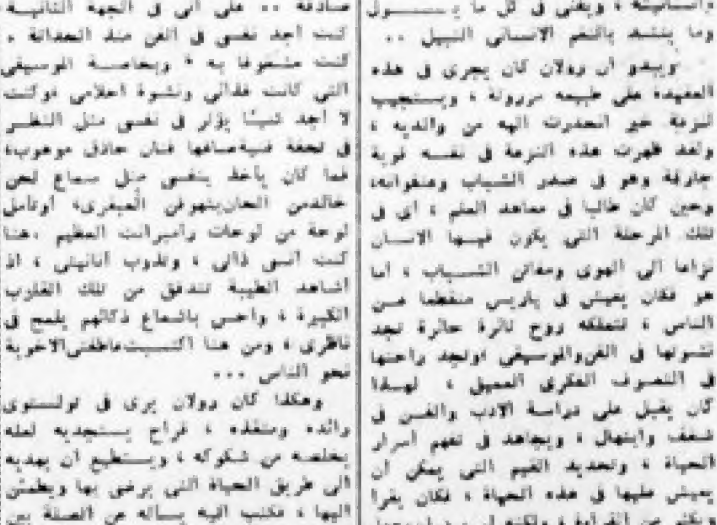 وانسانيته ، ويغنى فى كل ما
وما ينشد بالنغم الانسانى النبيل ..
ويبدو أن رولان كان يجرى فى هذه
العقيدة على طبيعة موروثة ، ويستجيب
لنزعة خير انحدرت اليه من والديه ،
ولقد ظهرت هذه النزعة فى نفسه قوية
جارفة وهو فى صدر الشباب وعنفوانه،
وحين كان طالبا فى معاهد العلم ، أى فى
تلك المرحلة التى يكون فيها الانسان
نزاعا الى الهوى ومفاتن الشباب ، أما
هو فكان يعيش فى باريس منقطعا عن
الناس ، تتملكه روح ثائرة حائرة تجد
نشوتها فى الفن والموسيقى ، وتجد راحتها
فى التصوف الفكرى العميق ، لهذا
كان يقبل على دراسة الادب والفن فى
شغف وابتهال ، ويجاهد فى تفهم أسرار
الحياة ، وتحديد القيم التى يمكن أن
يعيش عليها فى هذه الحياة ، فكان يقرأ
ويكثر من القراءة ، ولكنه
صادقة .. على أنى فى الجهة الثانية
كنت أجد نفسى فى الفن منذ الحداثة ،
كنت مشغوفا به ، وبخاصة الموسيقى
التى كانت غذائى ونشوة أحلامى ، وكنت
لا أجد شيئا يؤثر فى نفسى مثل النظر
فى تحفة فنية صاغها فنان حاذق موهوب،
فما كان يأخذ بنفسى مثل سماع لحن
خالد من ألحان بيتهوفن العبقرى، أو تأمل
لوحة من لوحات رامبرانت العظيم ، هنا
كنت أنسى ذاتى ، وتذوب أنانيتى ، اذ
أشاهد الطيبة تتدفق من تلك القلوب
الكبيرة ، وأحس باشعاع ذكائهم يلمع فى
ناظرى ، ومن هنا اكتسبت عاطفتى الاخوية
نحو الناس ...
وهكذا كان رولان يرى فى تولستوى
رائده ومنقذه ، فراح يستجديه لعله
يخلصه من شكوكه ، ويستطيع أن يهديه
الى طريق الحياة التى يرضى بها ويطمئن
اليها ، فكتب اليه يسأله عن الصلة بين